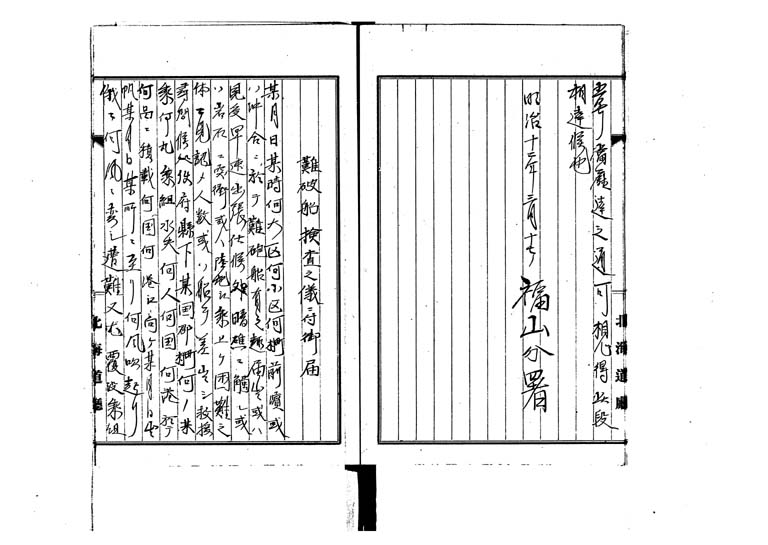 相達候也
明治十二年二月十七日
福山分署
北海道廳
難破船検査之儀ニ付御届
某月日某時何大区何小区何村前濱或
ハ沖合ニ於テ難破船有之趣届出或ハ
見受早速出張仕候処暗礁ニ觸レ或
ハ岩石ニ突衝或ハ陸地江乗上ケ困難之
体ヲ見認メ人数或ハ船ヲ差出シ救援
尋問候処使府縣下某国郡村何ノ某
乗何丸乗組水夫何人何国何港ニ於テ
何品ニ積載何国何港江向ケ某月日出
帆某月日某所ニ至リ何風吹起リ
俄ニ何風ニ変シ遭難又ハ覆没乗組
北海道廳